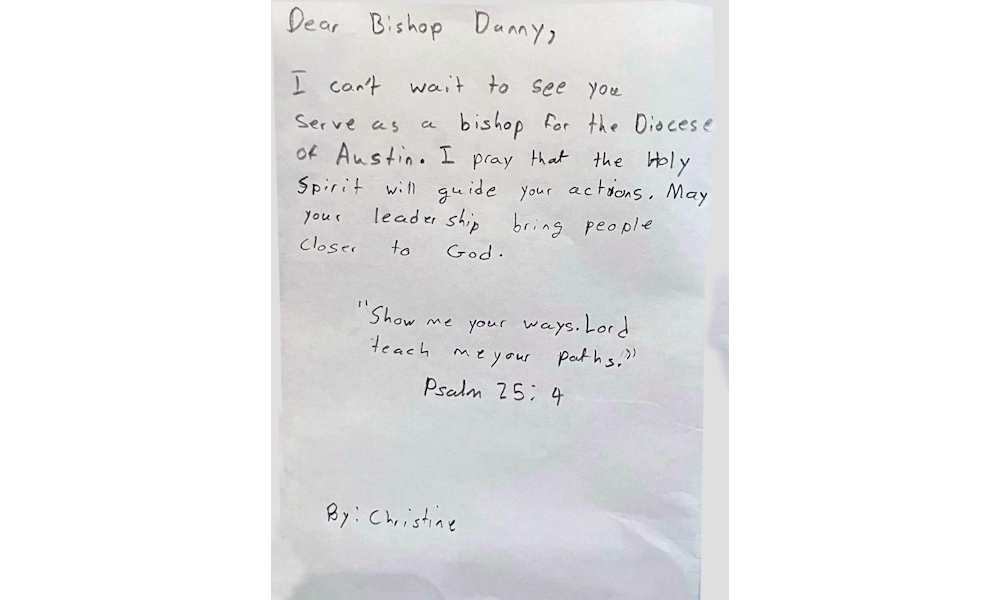 Dear Bishop Danny,
I can't wait to see you
serve as a bishop for the Diocese
of Austin. I pray that the Holy
Spirit will guide your actions. May
your leadership bring people
closer to God.
"Show me your ways. Lord
teach me your paths."
Psalm 25: 4
By: Christine